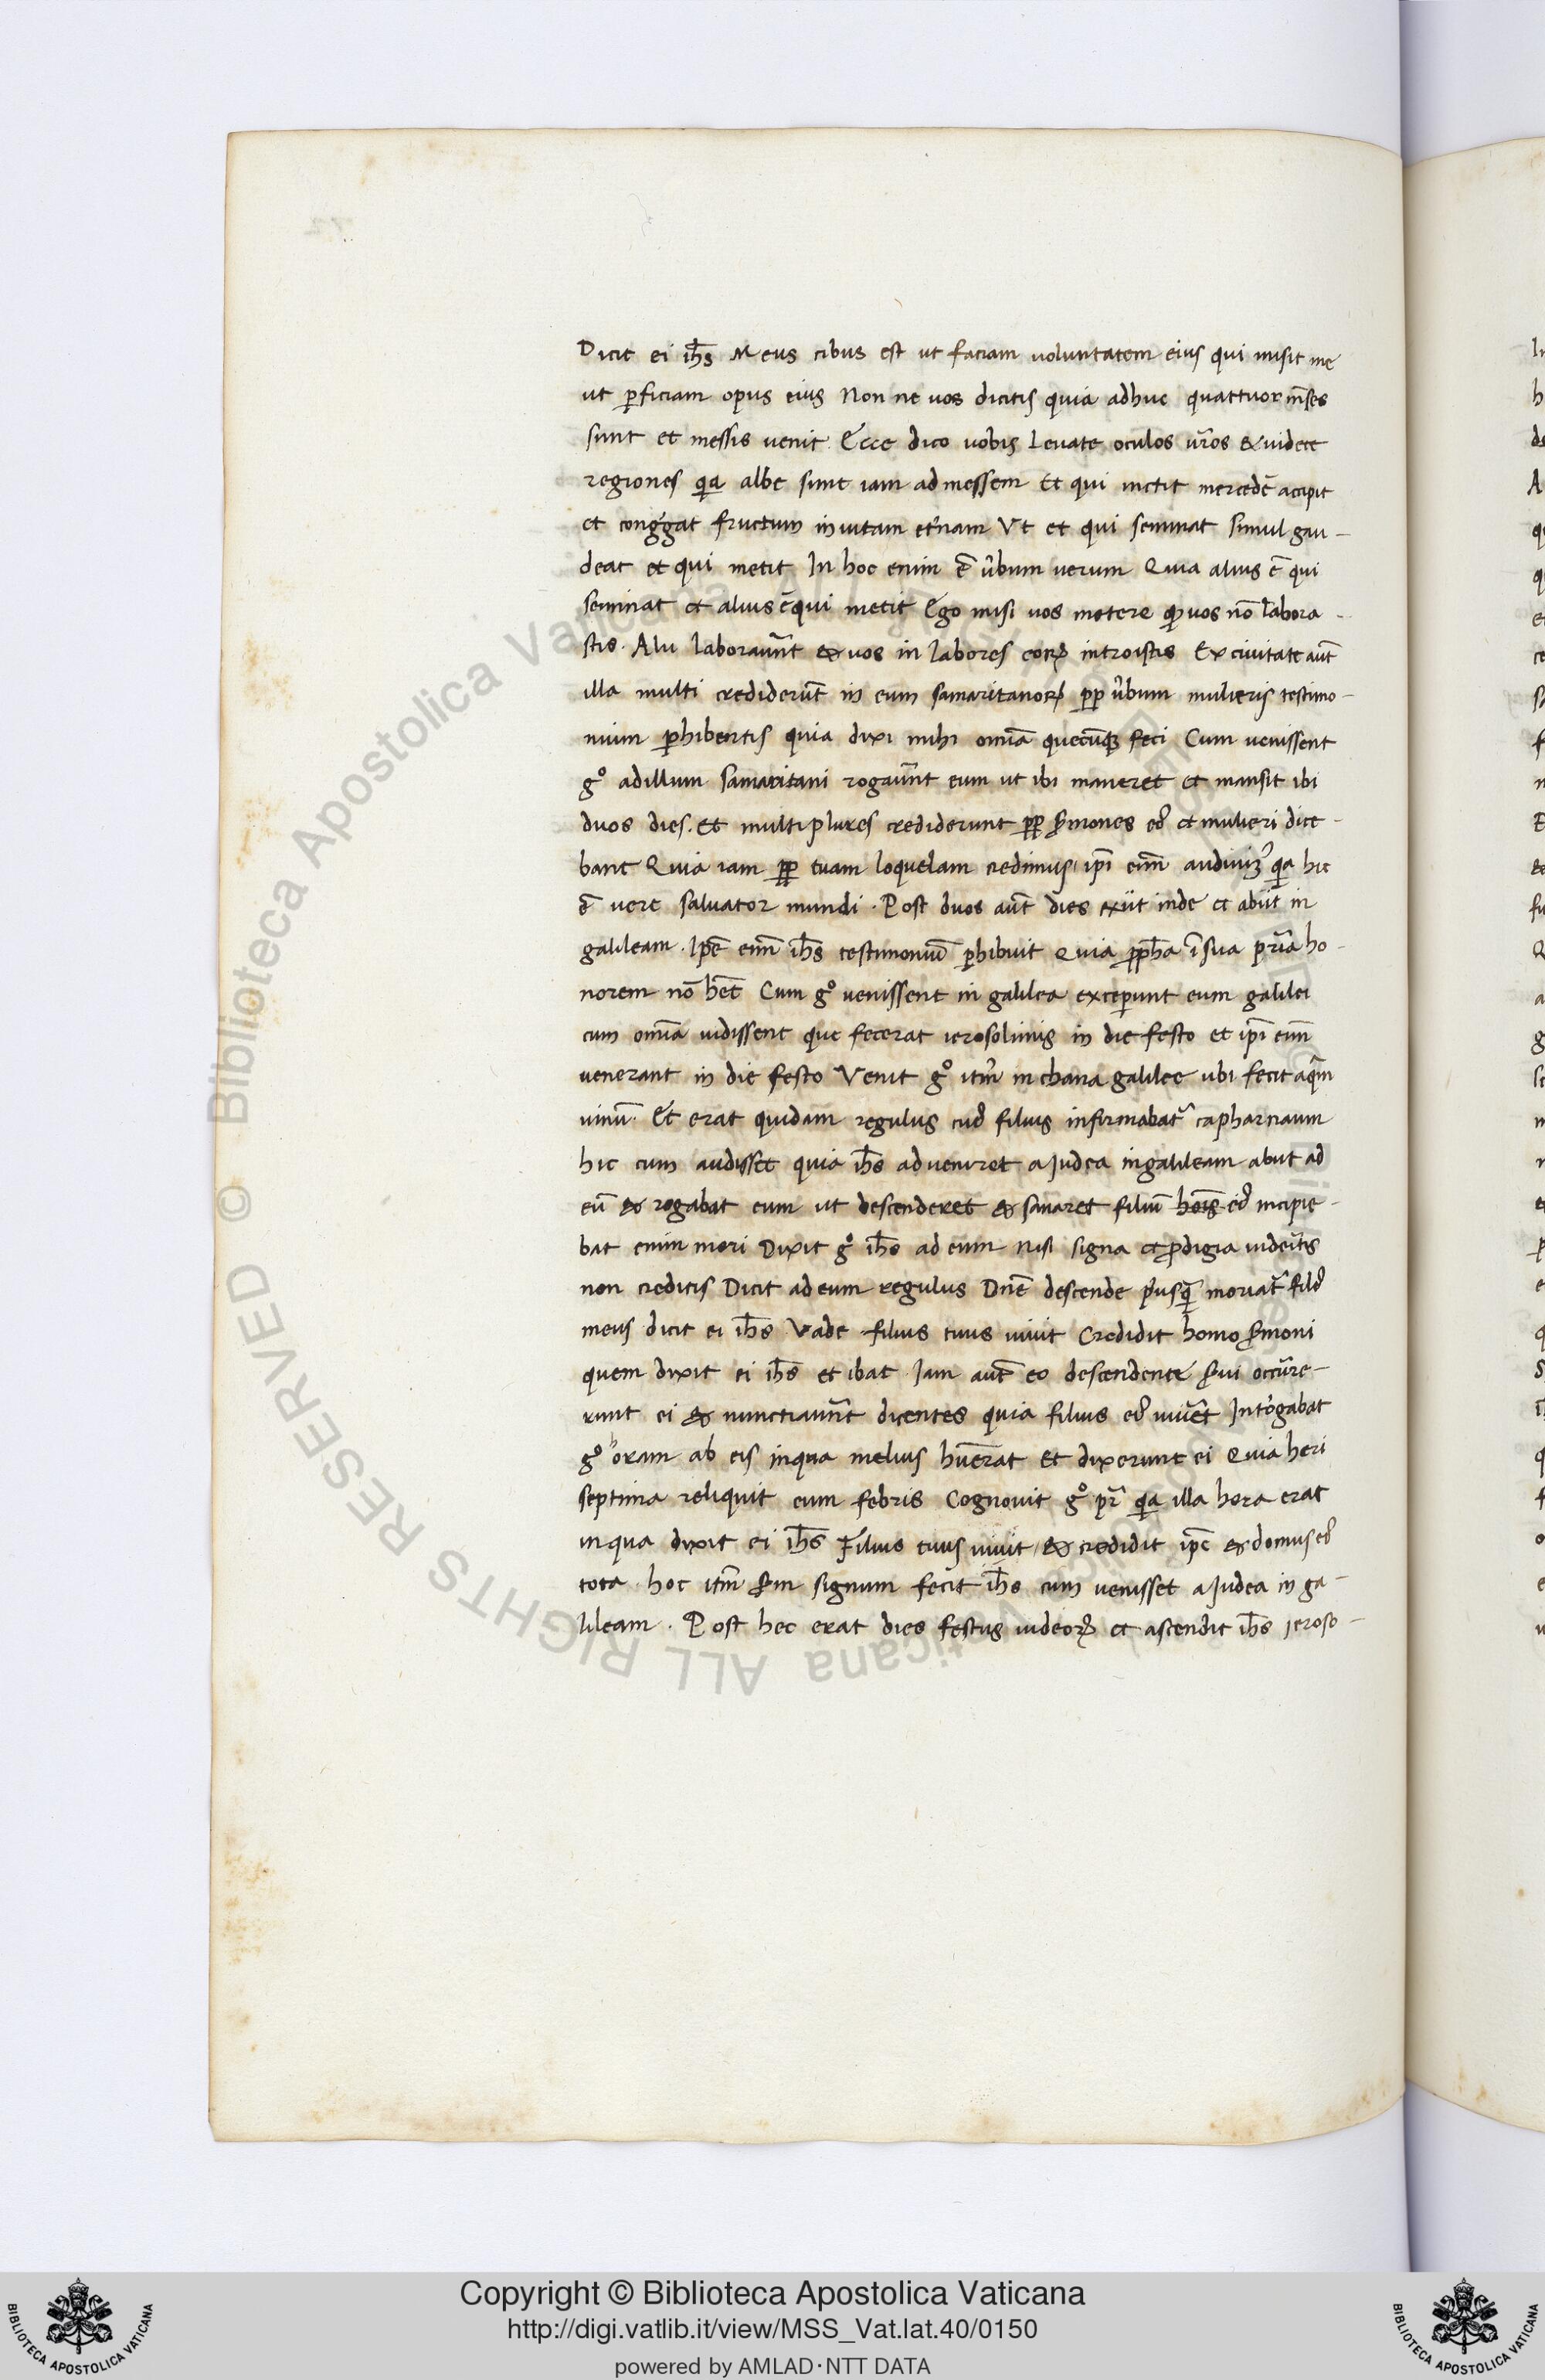 Dicit ei ih̅s Meus cibus est ut faciam voluntatem eius qui misit me
ut ꝑficiam opus eius Non ne vos dicitis quia adhuc quattuor m̅ses
sunt et messis venit. Ecce dico vobis Levate oculos vr̅os & videte
regiones qia albe sunt iam ad messem Et qui metit mercedē accipit
et cong̅gat fructum in vitam et̅nam Vt et qui seminat simul gau-
deat et qui metit In hoc enim ē v̅bum verum Quia alius ē qui
seminat et alius ē qui metit Ego misi vos metere qď vos nō labora-
stis. Alii laboravn̅t & vos in labores eoꝝ introistis Ex civitate aut̅
illa multi crediderūt in eum samaritanoꝝ ꝓꝑ v̅bum mulieris testimo-
nium ꝑhibentis quia dixi mihi om̅ia quecūqꝫ feci Cum venissent
g° ad illum samaritani rogavn̅t eum ut ibi maneret et mansit ibi
duos dies. Et multi plures crediderunt ꝓꝑ s̅mones eꝰ et mulieri dice-
bant Quia iam ꝓꝑ tuam loquelam credimus ip̅i eni̅m audiviꝫꝰ qia hic
ē vere salvator mundi. Post duos aut̅ dies exiit inde et abiit in
galileam. Ip̅e eni̅m ih̅s testimoniū ꝑhibuit Quia ꝓph̅a ī sua pr̅ia ho-
norem nō h̅et Cum g° venissent in galilea exceperunt eum galilei
cum om̅ia vidissent que fecerat ierosolimis in die festo et ip̅i eni̅m
venerant in die festo Venit g° itm̅ in chana galilee ubi fecit aq̅m
vinū. Et erat quidam regulus cuꝰ filius infirmabat̅ capharnaum
hic cum audisset quia ih̅s adveniret a Judea in galileam abiit ad
eū & rogabat eum ut descenderet & sanaret filiū ho̅is eiꝰ incipie-
bat enim mori Dixit g° ih̅s ad eum Nisi signa et ꝓdigia videritis
non creditis Dicit ad eum regulus Dn̅e descende priusq̅ moriat̅ filiꝰ
meus dicit ei ih̅s Vade filius tuus vivit Credidit homo s̅moni
quem dixit ei ih̅s et ibat. Iam aut̅ eo descendente s̅vi occūre-
runt ei & nunctiavn̅t dicentes quia filius eꝰ viveret Int̅ogabat
g° horam ab eis in qua melius hu̅erat Et dixerunt ei Quia heri
septima reliquit eum febris Cognovit g° pr̅ qia illa hora erat
in qua dixit ei ih̅s Filius tuus vivit & credidit ip̅e & domus eꝰ
tota. hoc itm̅ s̅m signum fecit ih̅s cum venisset a Judea in ga-
lileam. Post hec erat dies festus iudeoꝝ et ascendit ih̅s jeroso-
Copyright © Biblioteca Apostolica Vaticana
http://digi.vatlib.it/view/MSS_Vat.lat.40/0150
powered by AMLAD·NTT DATA